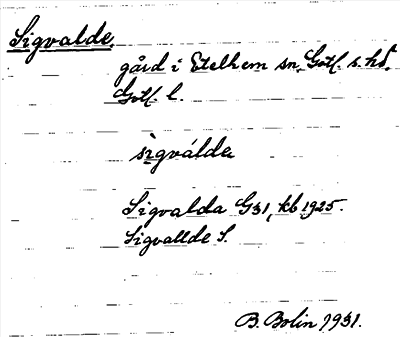 Sigvalde,
gård i Etelhem sn, Gotl. s. hd,
Gotl. l.
sìgválda
Sigvalda G31, kb 1925.
Sigvallde S.
B. Bolin 1931.